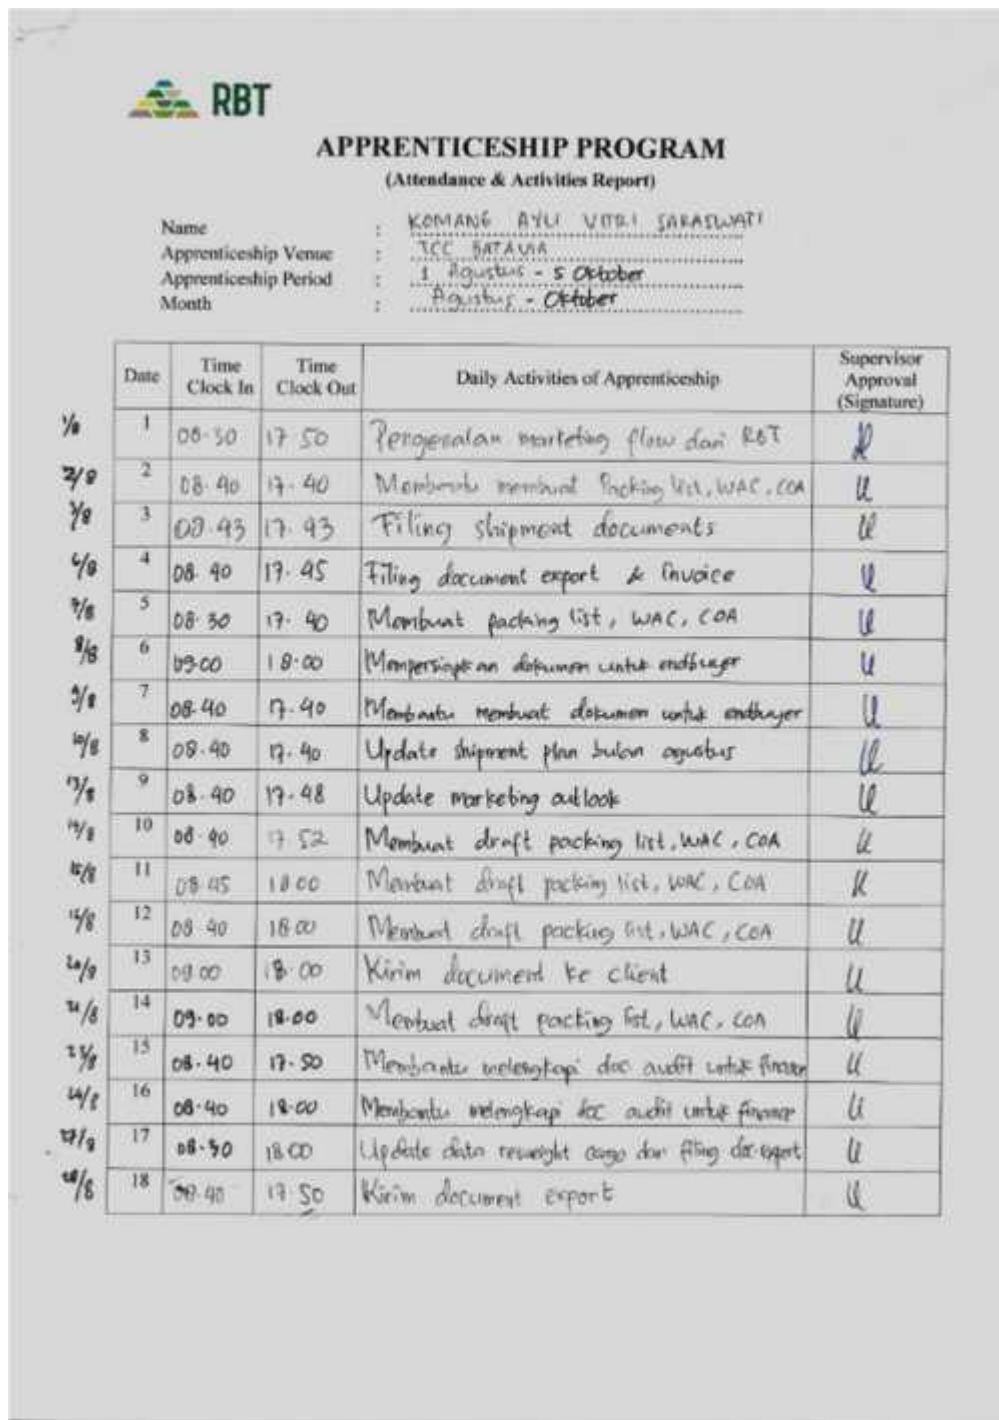 RBT
APPRENTICESHIP PROGRAM
(Attendance & Activities Report)
Name : KOMANG AYU VITRI SARASWATI
Apprenticeship Venue : TCC BATAVIA
Apprenticeship Period : 1 Agustus - 5 Oktober
Month : Agustus - Oktober
Date Time Clock In Time Clock Out Daily Activities of Apprenticeship Supervisor Approval (Signature)
1/8 1 08-30 17 50 Pengenalan marketing flow dari RBT
2/8 2 08.40 17.40 Membantu membuat Packing list, WAC, COA
3/8 3 08.43 17.43 Filing shipment documents
6/8 4 08.40 17.45 Filing document export & invoice
7/8 5 08.30 17.40 Membuat packing list, WAC, COA
8/8 6 09.00 18.00 Mempersiapkan dokumen untuk endbuyer
9/8 7 08.40 17.40 Membantu membuat dokumen untuk endbuyer
10/8 8 08.40 17.40 Update shipment plan bulan agustus
13/8 9 08.40 17.48 Update marketing outlook
14/8 10 08.40 17 52 Membuat draft packing list, WAC, COA
15/8 11 08 45 18 00 Membuat draft packing list, WAC, COA
12 08 40 18 00 Membuat draft packing list, WAC, COA
13 09 00 18.00 Kirim document ke client
21/8 14 09.00 18.00 Membuat draft packing list, WAC, COA
23/8 15 08.40 17.50 Membantu melengkapi doc audit untuk finance
24/8 16 08.40 18.00 Membantu melengkapi doc audit untuk finance
27/8 17 08.30 18 00 Update data reweight cargo dan filing doc export
28/8 18 08.40 17 50 Kirim document export